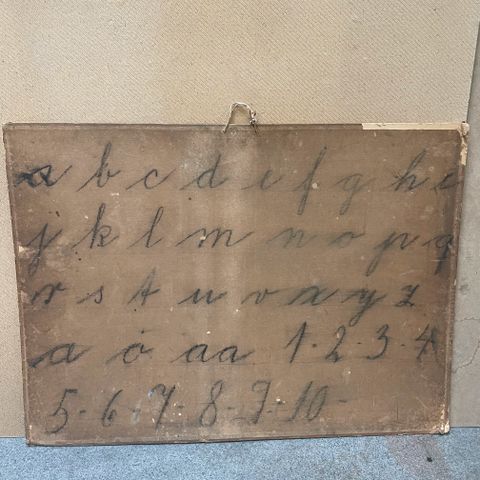 a b c d e f g h i
j k l m n o p q
r s t u v x y z
a ó aa 1-2-3-4
5-6-7-8-9-10-